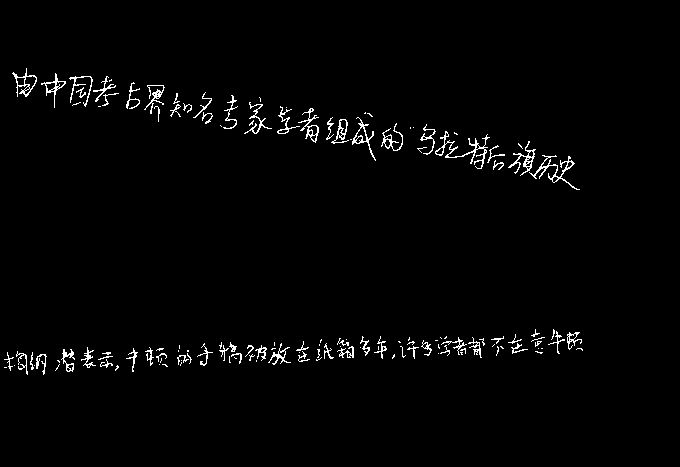 由中国考占界知名专家学者组成的乌拉特后旗历史
相纲潜表示,牛顿的手稿被放在纸箱多年,许多学者都不在意牛顿